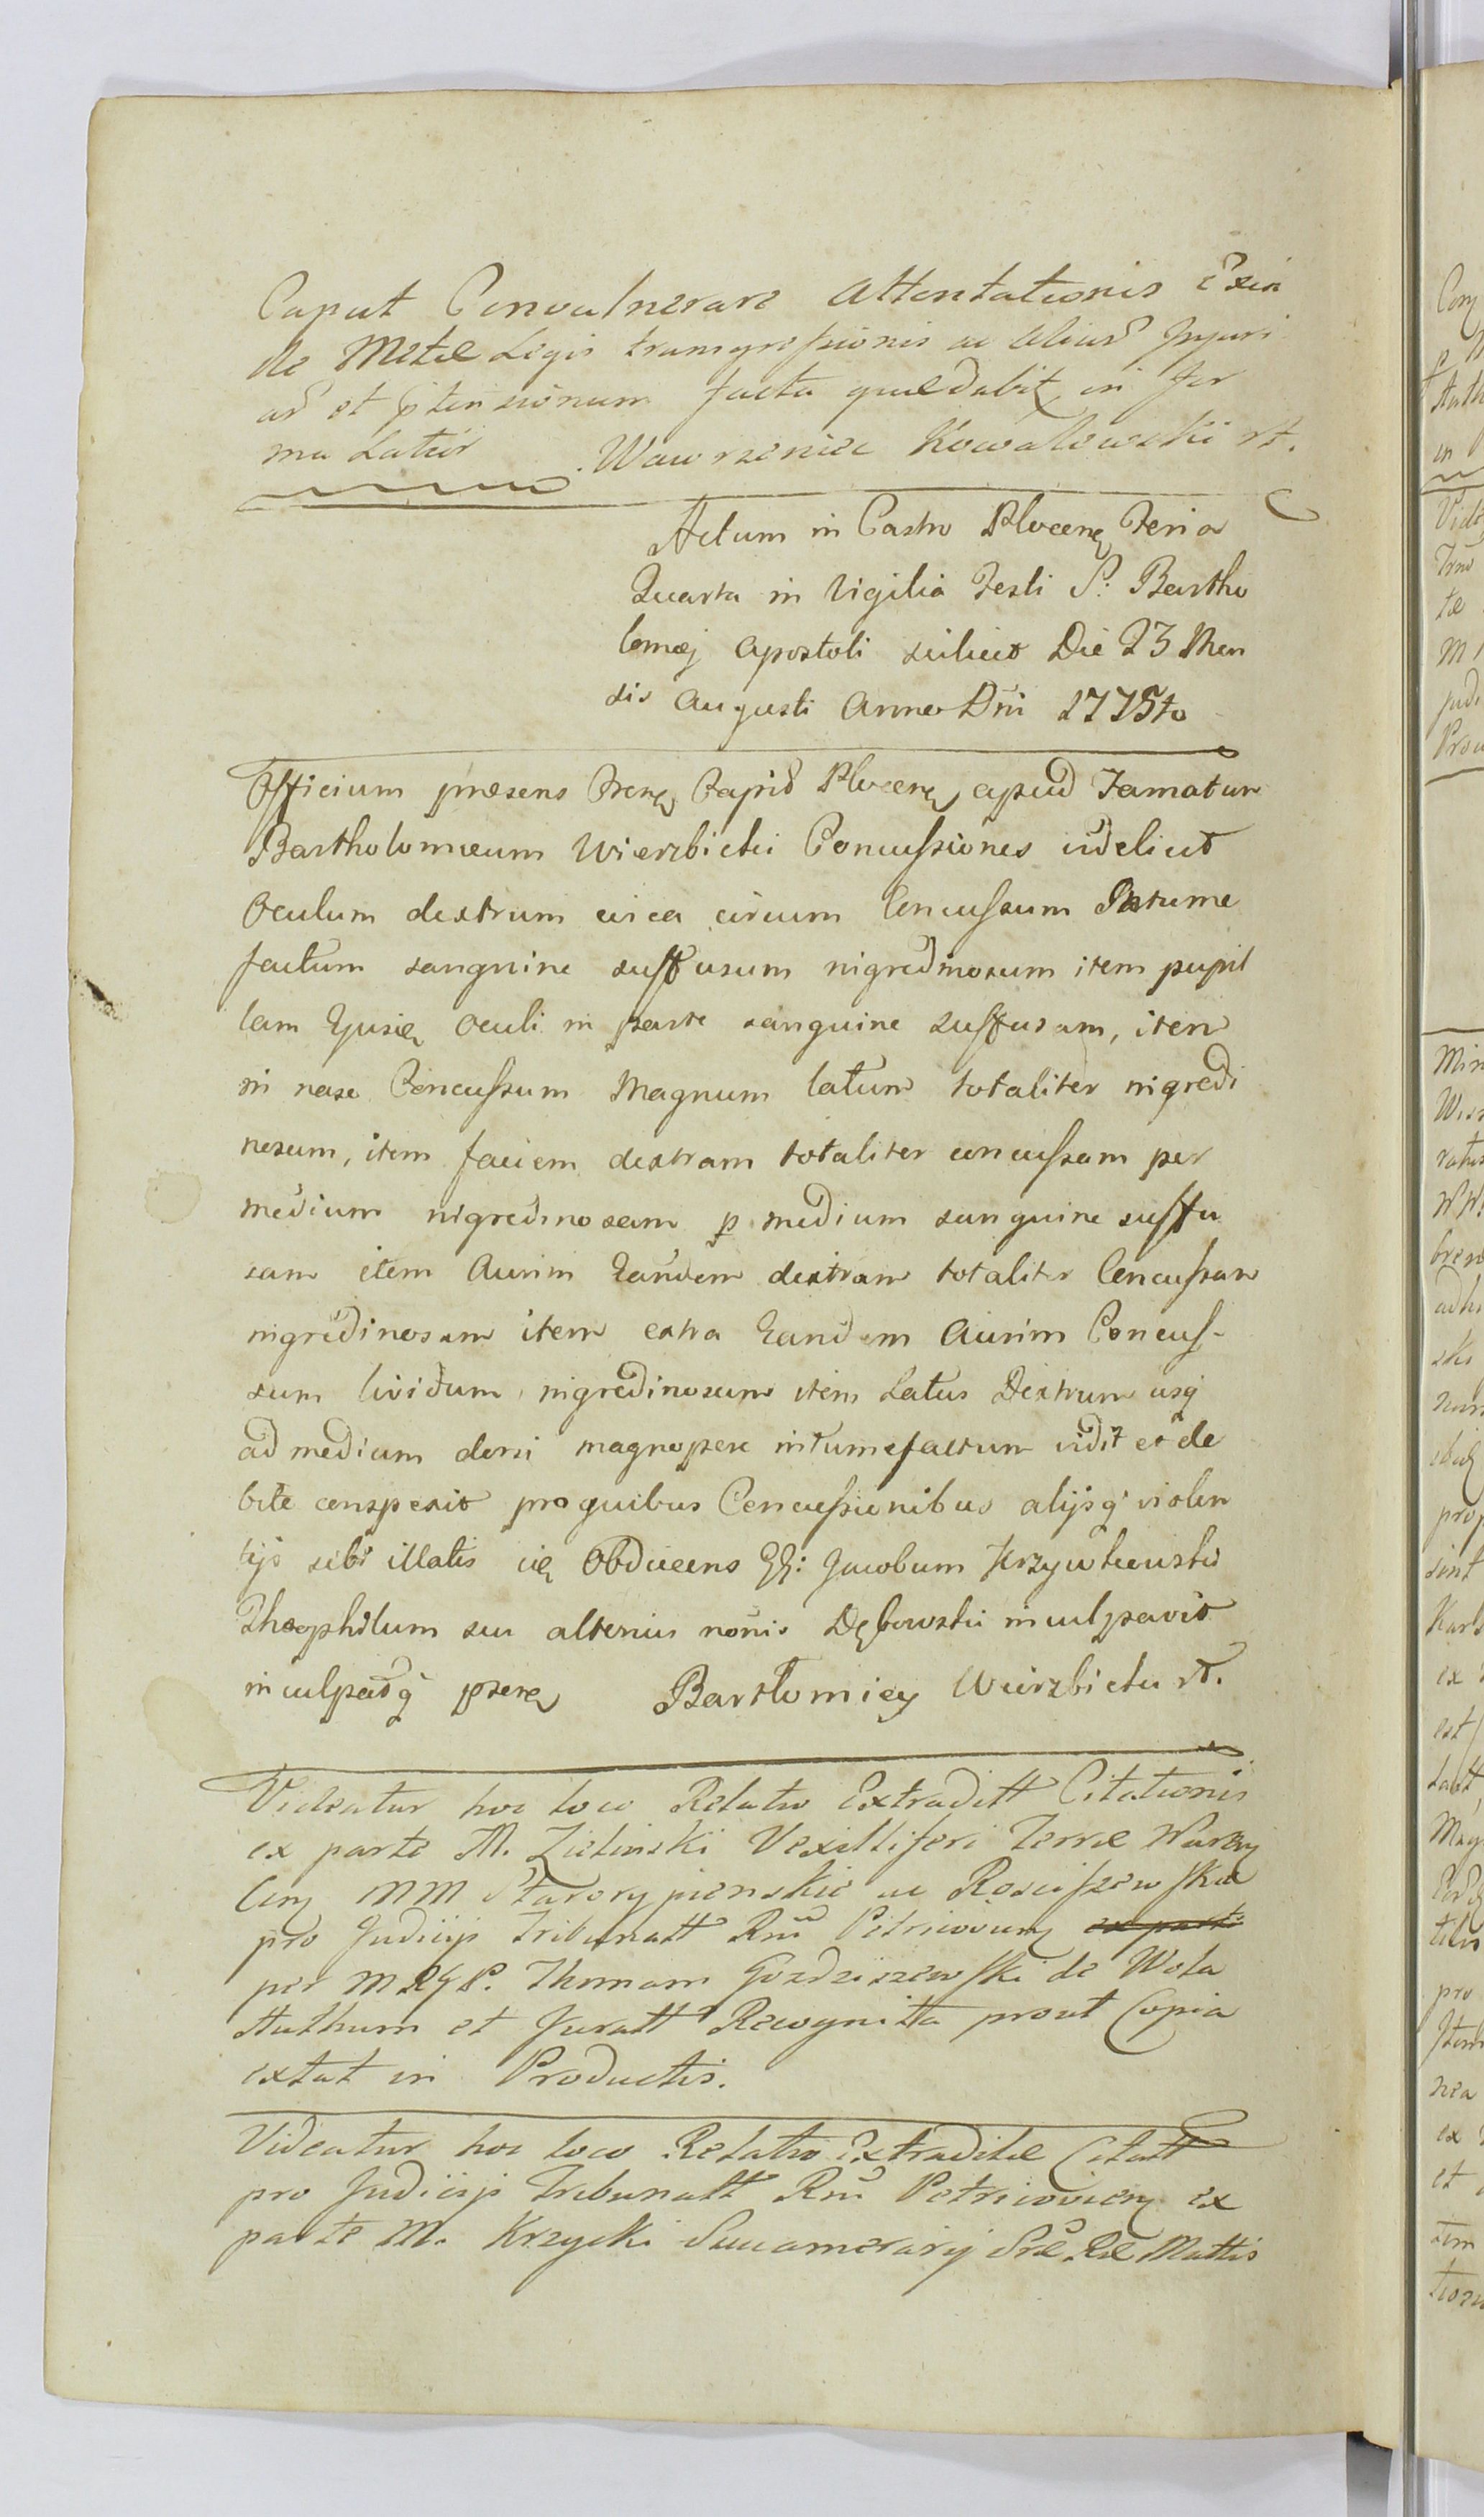 Caput Convulnerare Attentationis Exin
de Metæ Legis transgressionis ac aliar Injuri
ar et ptensionum facta quædabit in for
ma Latior Wawrzeniec Kowalowski rt.
Actum in Castro Plocen Feria
Quarta in Vigilia Festi S: Bartho
lomæj Apostoli scilicet Die 23 Men
sis Augusti Anno Dni 1775to
Officium præsens Cren Capis Plocen apud Famatum
Bartholomæum Wierzbicki Concussiones videlicet
Oculum dextrum circa circum Concussum Intume
factum sanguine suffusum nigredinosum item pupil
lam Ejusd Oculi in parte sanguine suffusam, item
in naso Concussum Magnum latum totaliter nigredi
nosum, item faciem dextram totaliter concussam per
medium nigredinosam p medium sanguine suffu
sam item Aurim Eandem dextram totaliter Concussam
nigredinosam item extra Eandem Aurim Concus-
sum lividum, nigredinosum item Latus Dextrum usq
ad medium dorsi magnopere intumefactum vidit et de
bite conspexit pro quibus Concussionibus alijsq violen
tijs sibi illatis obducens GG: Jacobum Krzywkowski
Theophilum seu alterius nonis Dębowski inculpavit
inculpatq psen Bartłomiey Wierzbicki rt.
Videatur hoc loco Relatio Extraditt Citationis
ex parte M. Zielinski Vexilliferi Terræ Wyszog
Con MM Starorypienskie ac Roscissewskie
pro Judicijs Tribunatt Rni Petricovien ex parte
per M Thomam Gozdziszewski de Wola
Authum et Juratt Recognitta prout Copia
extat in Productis.
Videatur hoc loco Relatio Extraditæ Citatt
pro Judicijs Tribunatt Rni Petricovien ex
parte M. Krzycki Succamerarij Sræ Ræ Mattis